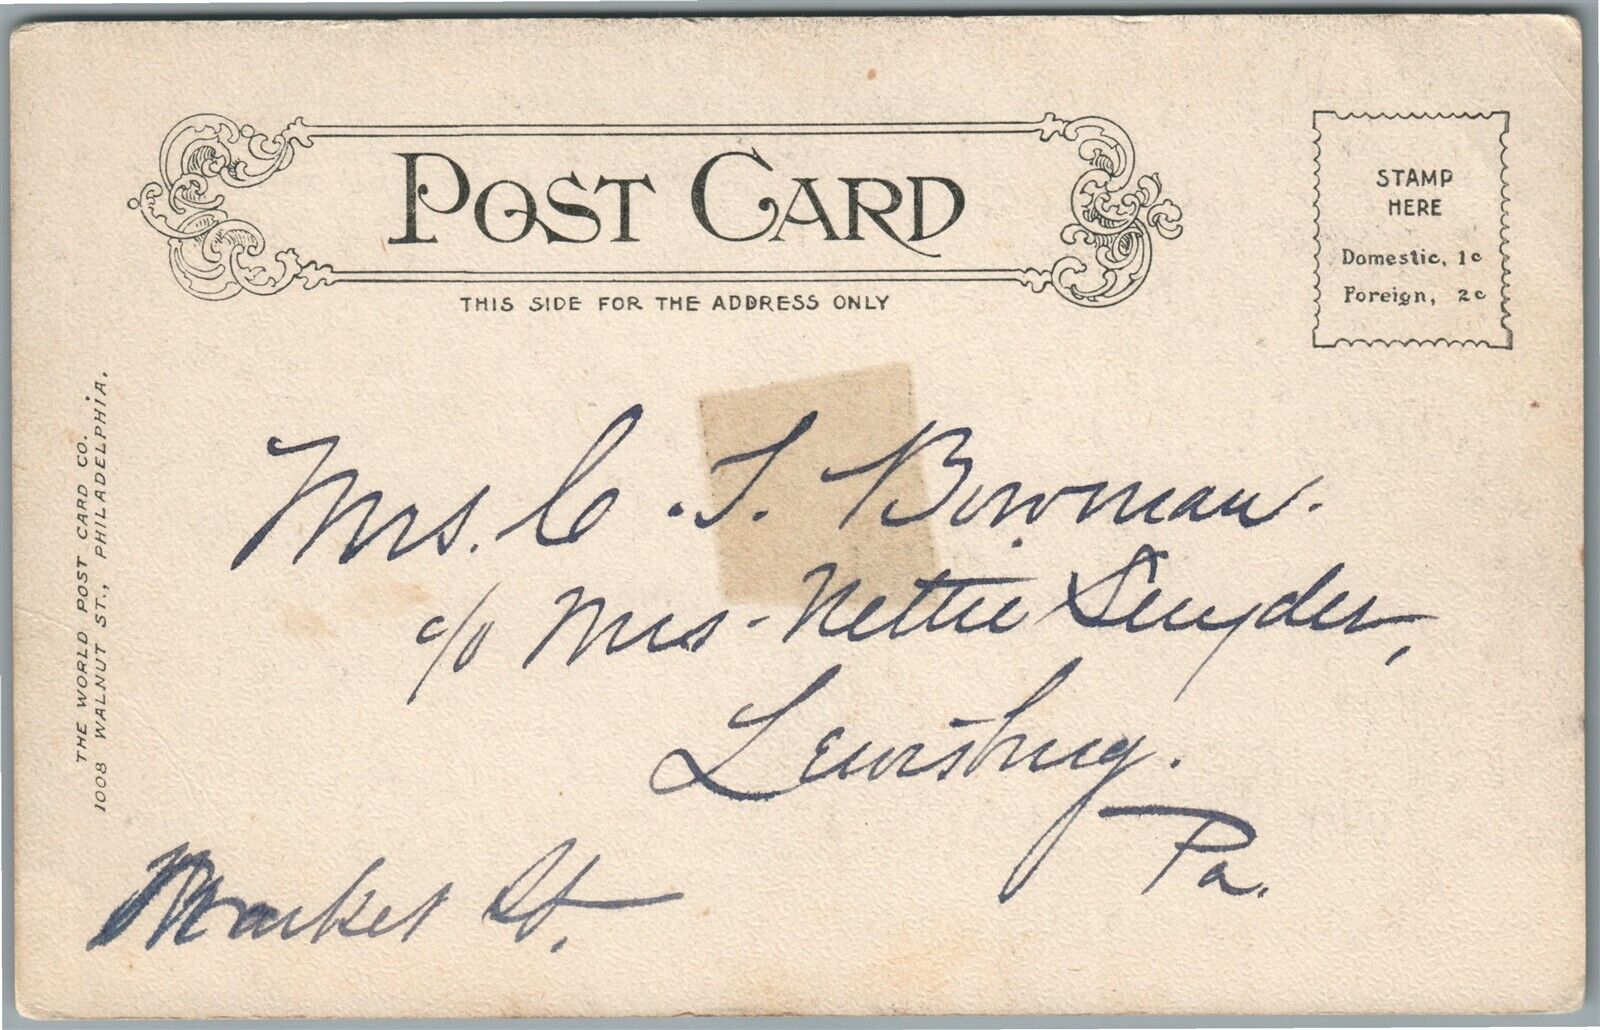 POST CARD
THIS SIDE FOR THE ADDRESS ONLY
STAMP
HERE
Domestic, 1c
Foreign, 2c
THE WORLD POST CARD CO.
1008 WALNUT ST., PHILADELPHIA.
Mrs. C. S. Bowman.
c/o Mrs - Nettie Snyder,
Lewisburg.
Pa.
Market St.